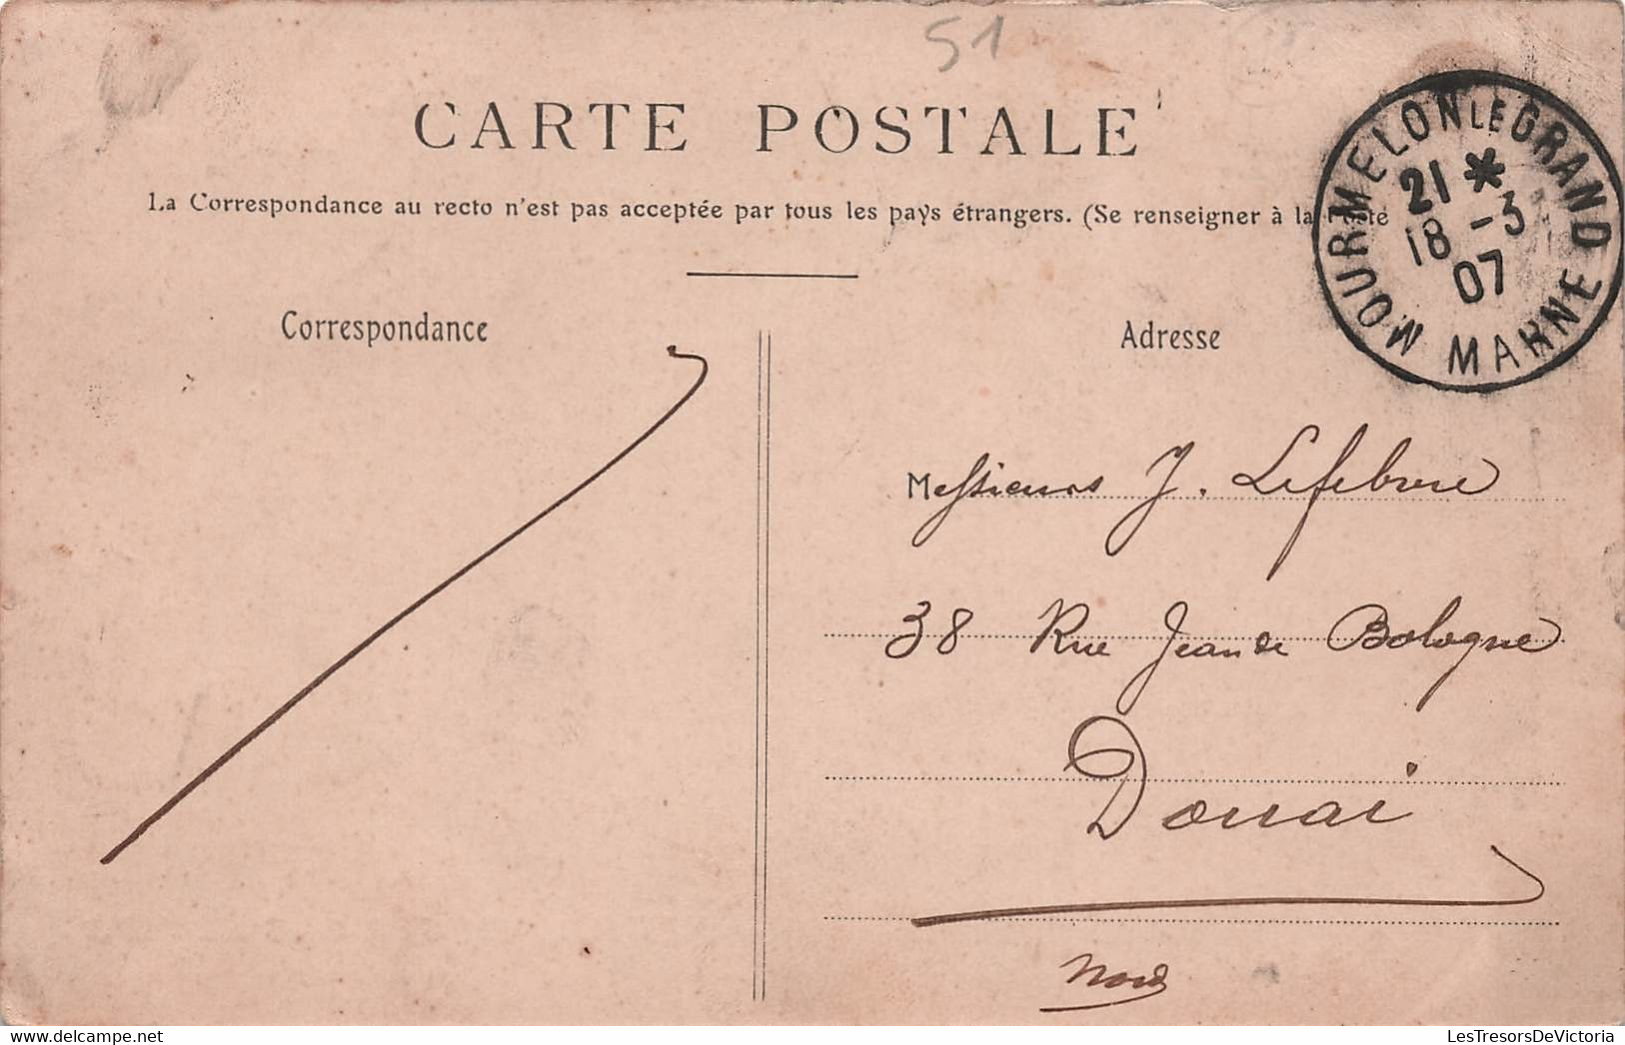 51
CARTE POSTALE
La Correspondance au recto n'est pas acceptée par tous les pays étrangers. (Se renseigner à la Poste
MOURMELON LE GRAND
21 *
18 -3
07
MARNE
Correspondance
Adresse
Messieurs J. Lefebvre
38 Rue Jean de Bologne
Douai
Nord
LesTresorsDeVictoria